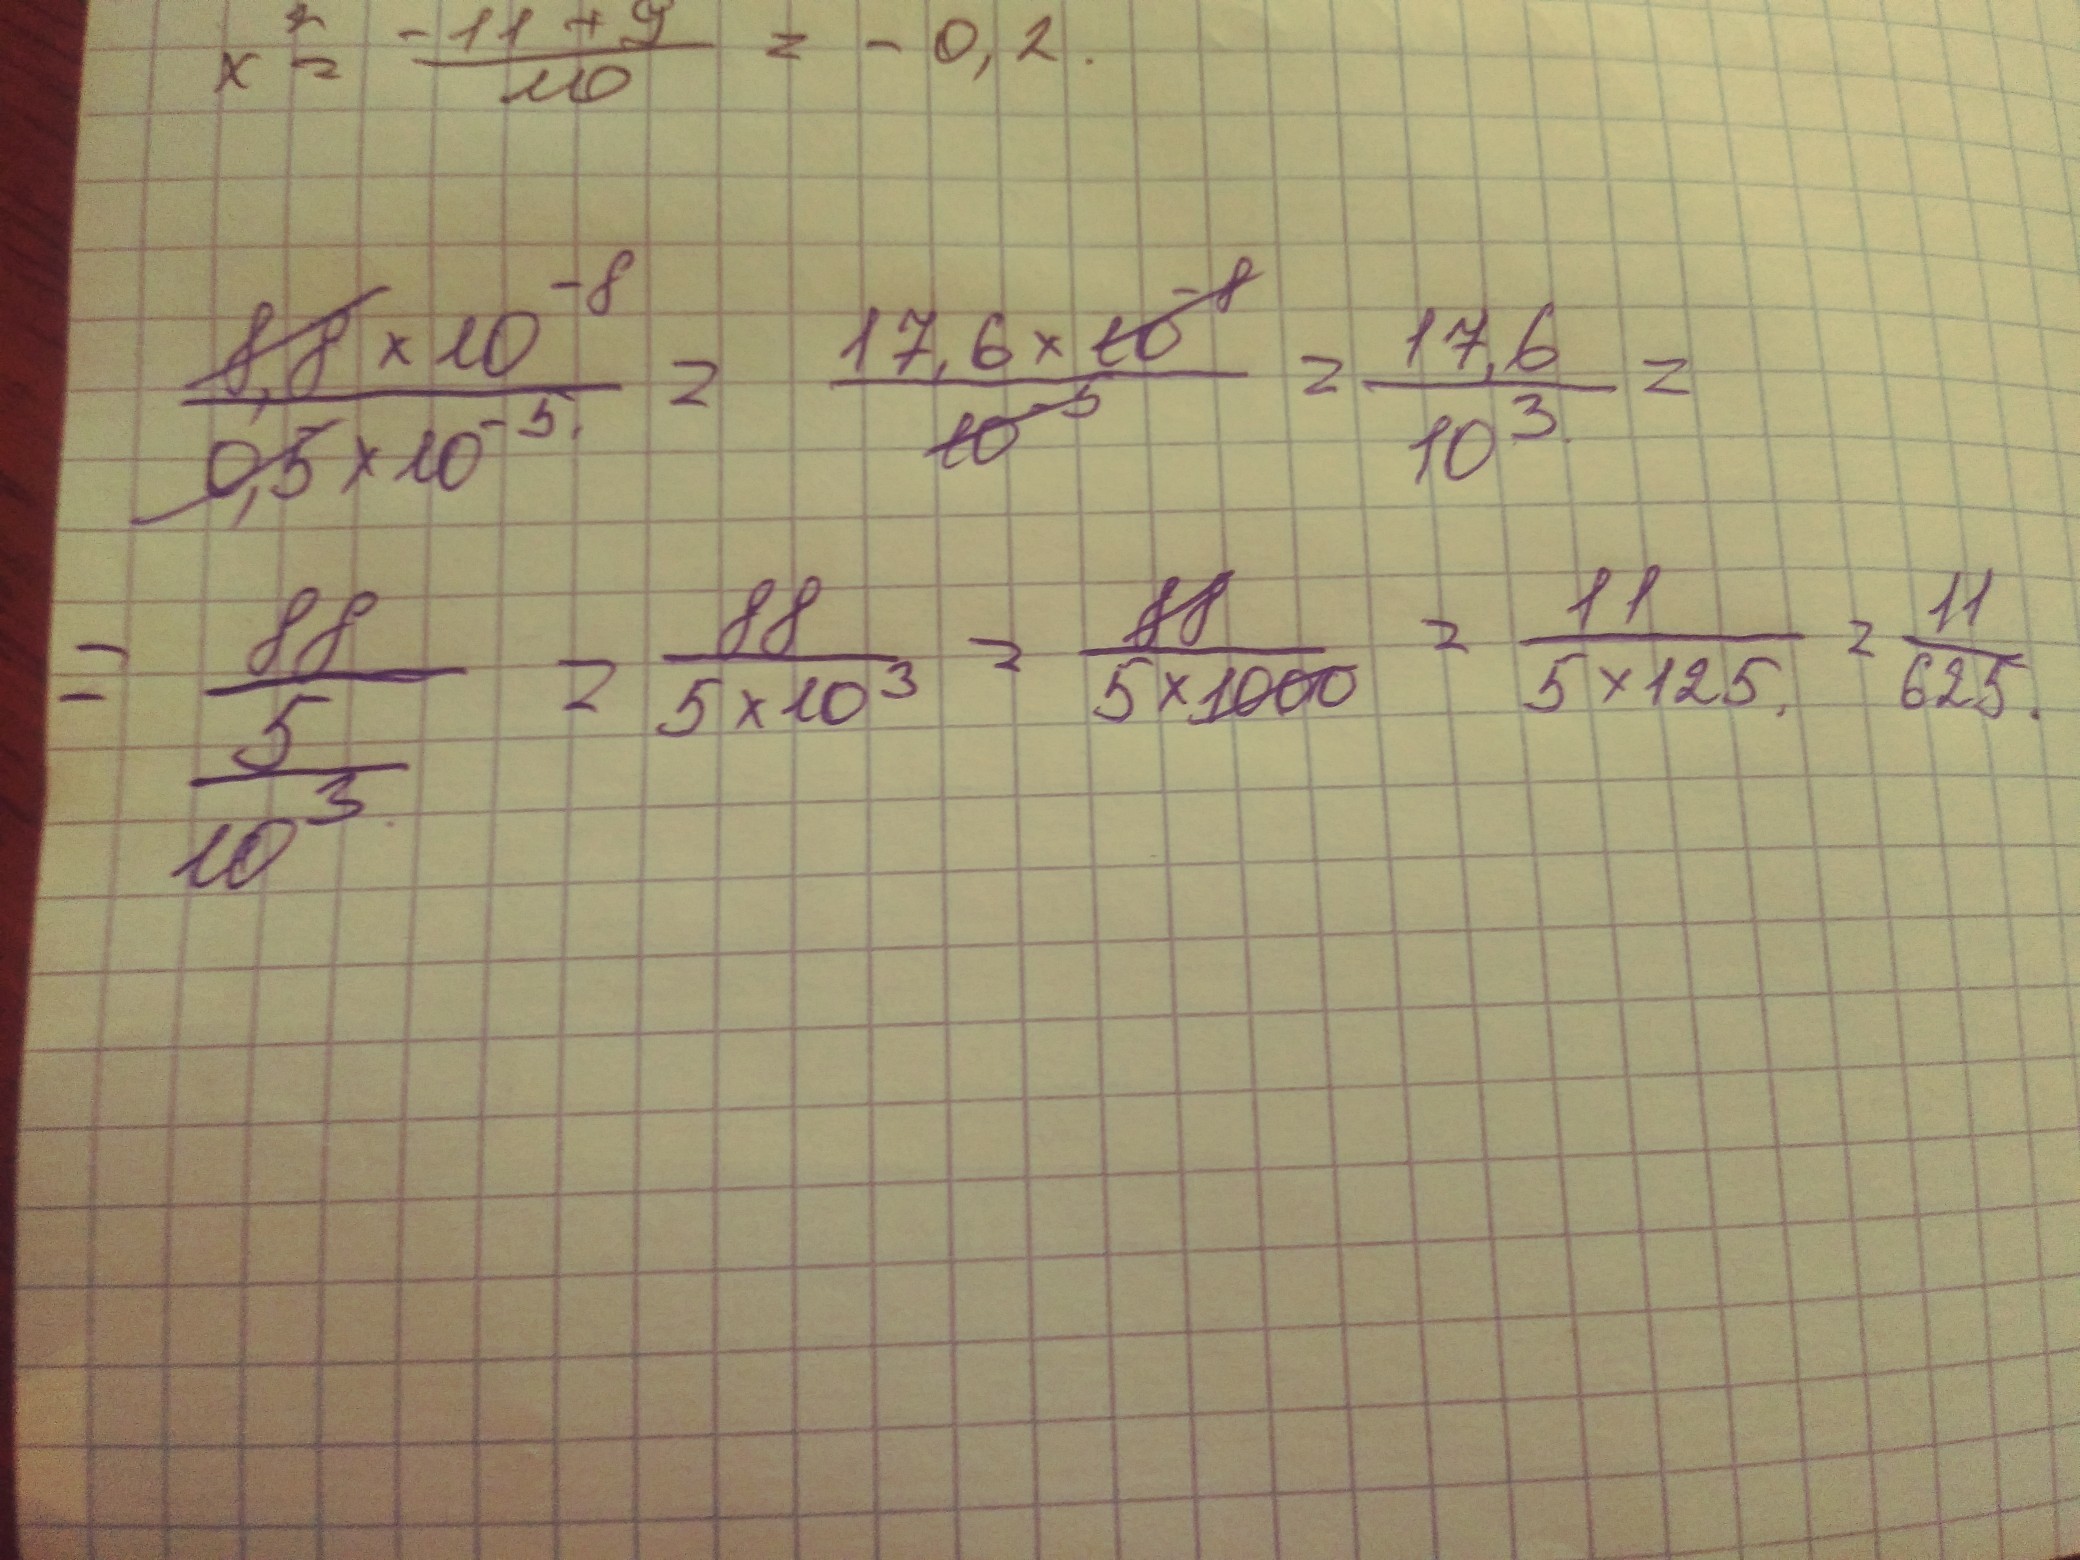 x = (-11 + 9)/10 = -0,2.
(8,8 × 10^-8)/(0,5 × 10^-5) = (17,6 × 10^-8)/(10^-5) = 17,6/10^3 =
= (88/5)/10^3 = 88/(5 × 10^3) = 88/(5 × 1000) = 11/(5 × 125) = 11/625.